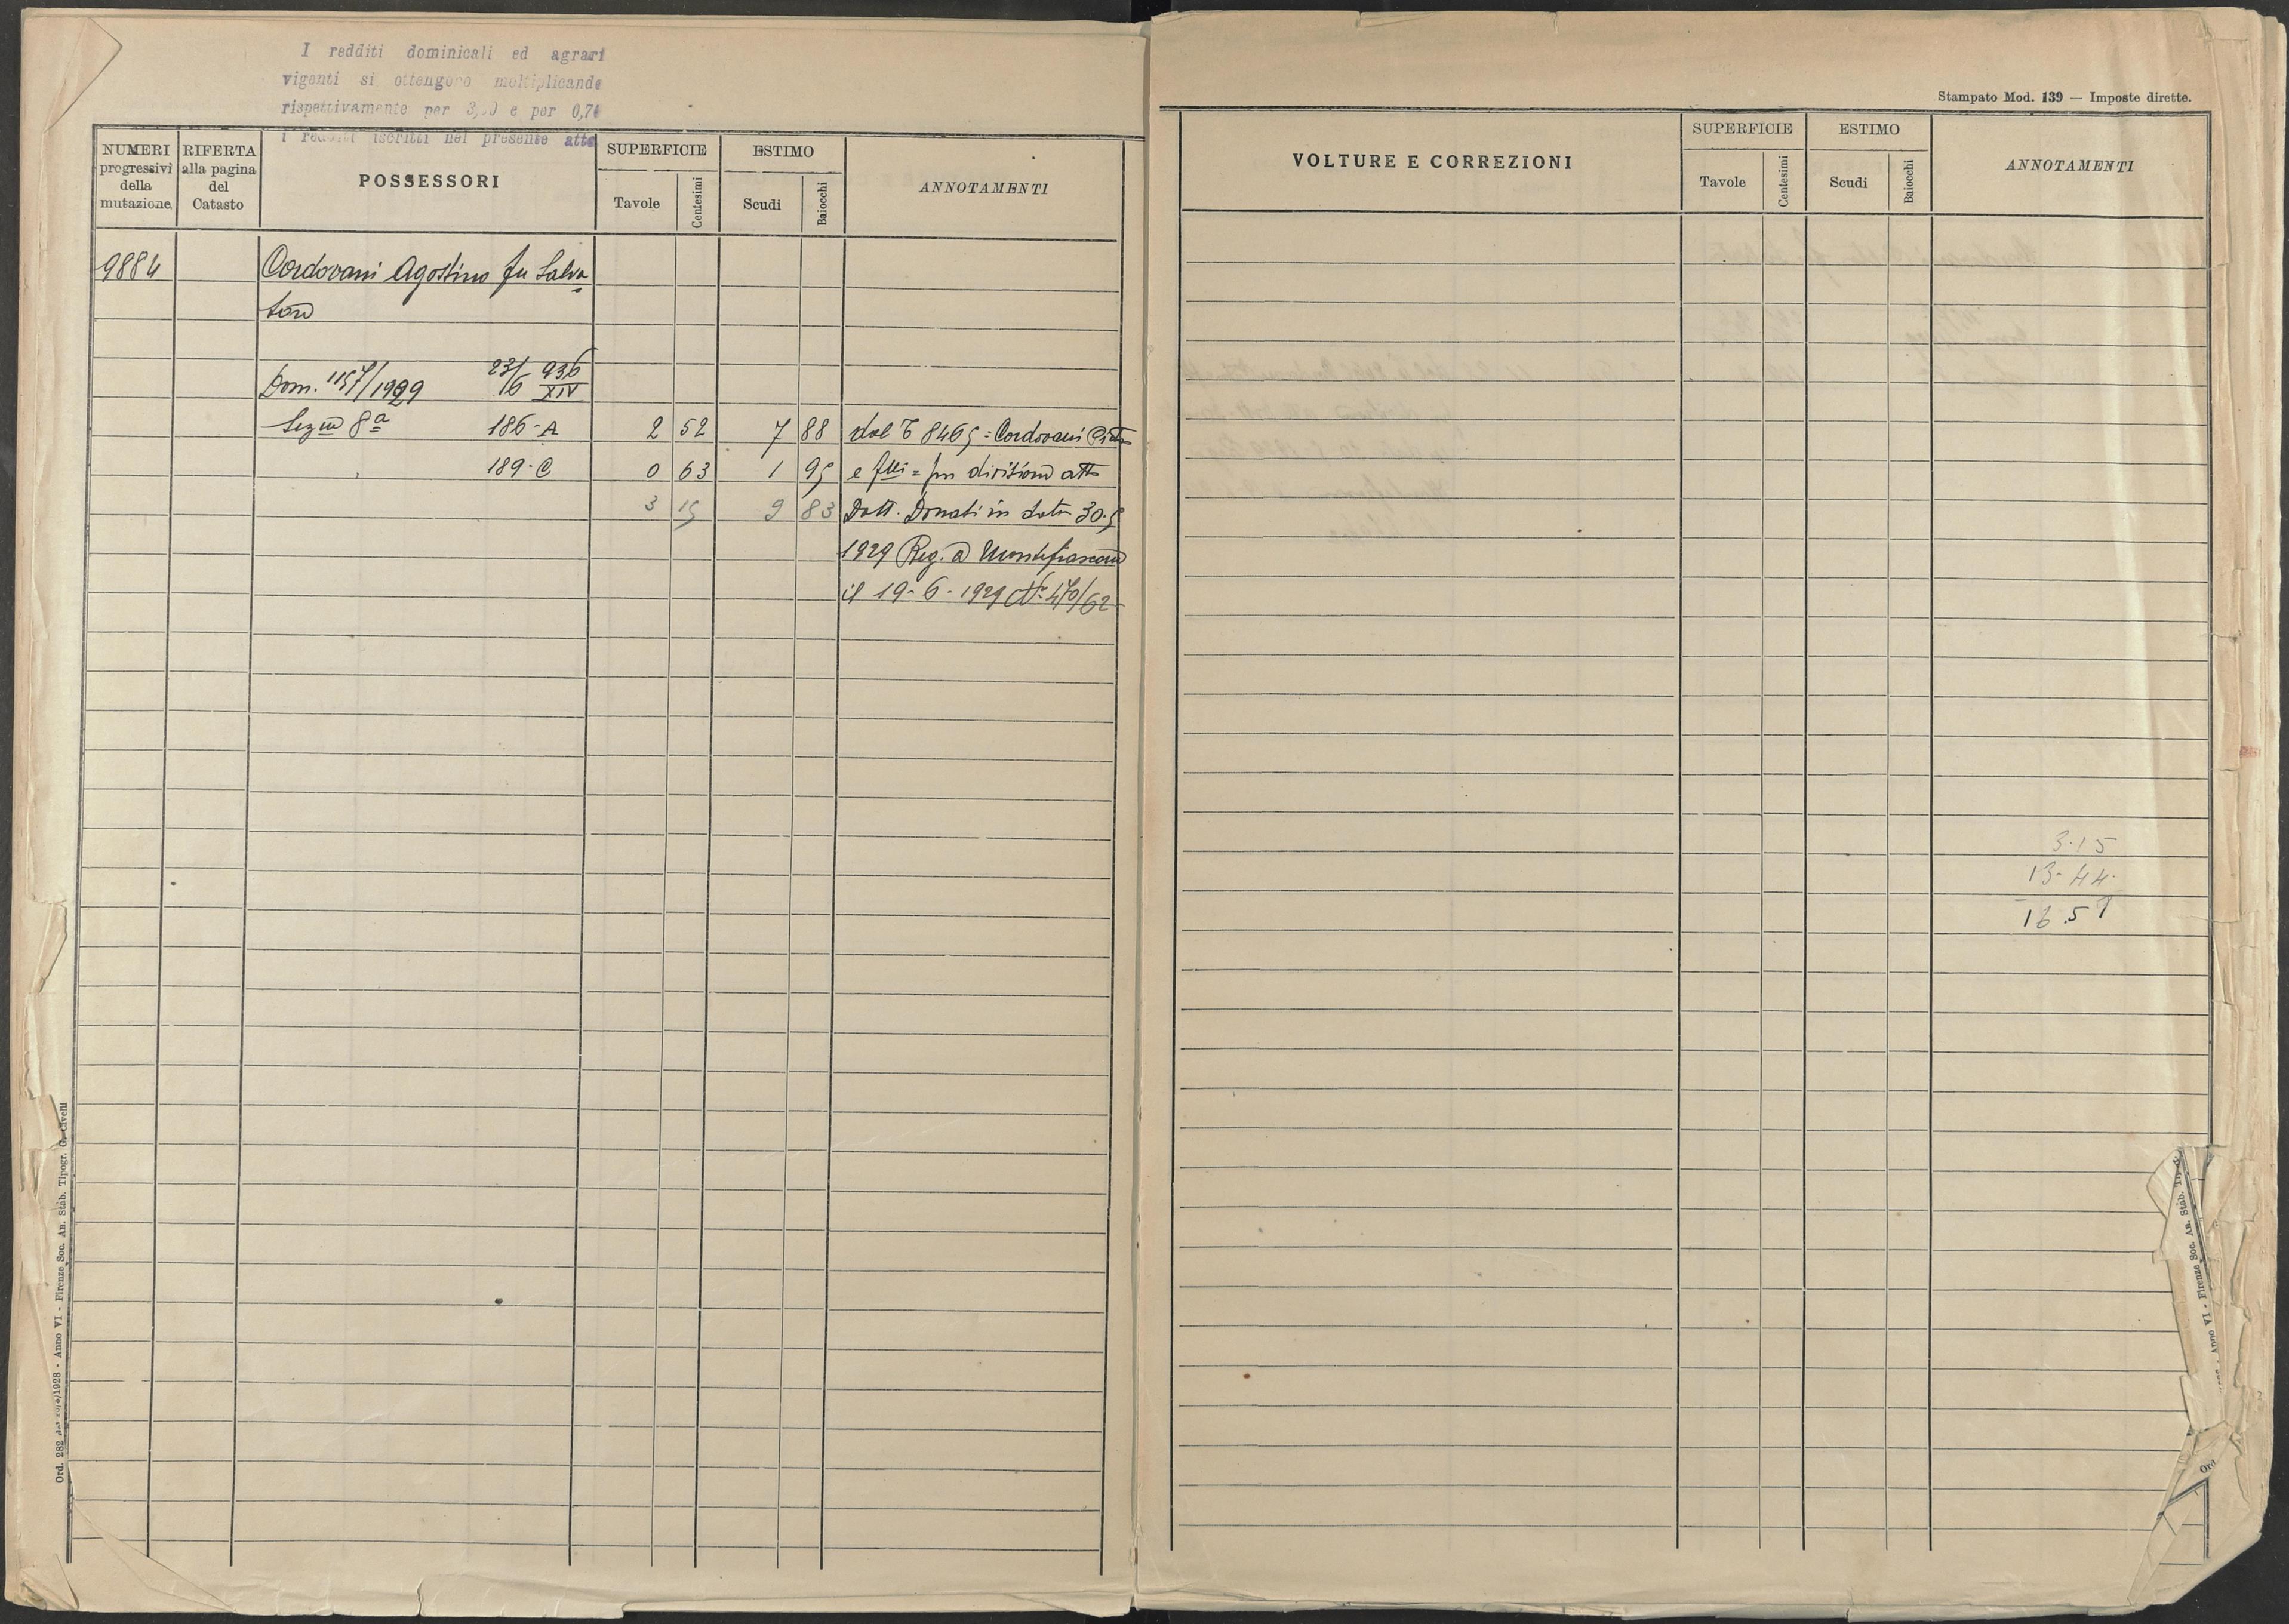 I redditi dominicali ed agrari
vigenti si ottengono moltiplicando
rispettivamente per e per 0,7
i redditi iscritti nel presente atto
NUMERI progressivi della mutazione
RIFERTA alla pagina del Catasto
POSSESSORI
SUPERFICIE
Tavole
Centesimi
ESTIMO
Scudi
Baiocchi
ANNOTAMENTI
9884 Cordovani Agostino fu Salva
tore
Dom. 1157/1929 23/6 936 XIV
Sezne 8ª 186-A 2 52 7 88 dal 8465 = Cordovani
189-C 0 63 1 95 e flli = per divisione atto
3 15 9 83 Dott. Donati in data 30.5
1929 Reg. a Montefiascone
il 19-6-1929 N° 470/62
Ord. 282 1928 - Anno VI - Firenze, Soc. An. Stab. Tipogr. G. Civelli
Stampato Mod. 139 — Imposte dirette.
VOLTURE E CORREZIONI
SUPERFICIE
Tavole
Centesimi
ESTIMO
Scudi
Baiocchi
ANNOTAMENTI
3.15
13.44.
16.59
Anno VI - Firenze, Soc. An. Stab.
Ord